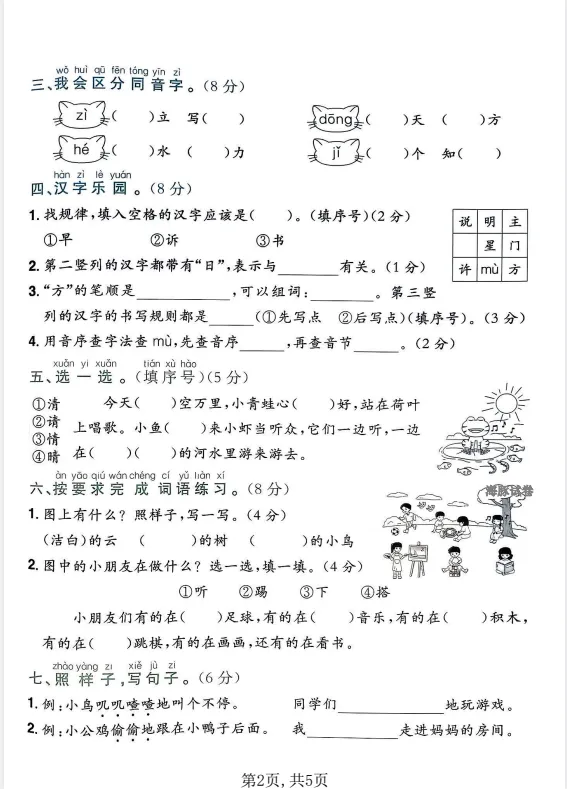 wǒ huì qū fēn tóng yīn zì
三、我会区分同音字。(8分)
zì (  )立 写(  ) dōng (  )天 (  )方
hé (  )水 (  )力 jǐ (  )个 知(  )
hàn zì lè yuán
四、汉字乐园。(8分)
1.找规律,填入空格的汉字应该是(  )。(填序号)(2分)
①早 ②诉 ③书
说 明 主
星 门
许 mù 方
2.第二竖列的汉字都带有“日”,表示与______有关。(1分)
3.“方”的笔顺是__________,可以组词:______。第三竖
列的汉字的书写规则都是_____(①先写点 ②后写点)(填序号)。(3分)
4.用音序查字法查mù,先查音序_____,再查音节_____。(2分)
xuǎn yi xuǎn tián xù hào
五、选一选。(填序号)(5分)
①清 ②请 ③情 ④晴
今天(  )空万里,小青蛙心(  )好,站在荷叶
上唱歌。小鱼(  )来小虾当听众,它们一边听,一边
在(  )(  )的河水里游来游去。
àn yāo qiú wán chéng cí yǔ liàn xí
六、按要求完成词语练习。(8分)
海豚试卷
1.图上有什么?照样子,写一写。(4分)
(洁白)的云 (  )的树 (  )的小鸟
2.图中的小朋友在做什么?选一选,填一填。(4分)
①听 ②踢 ③下 ④搭
小朋友们有的在(  )足球,有的在(  )音乐,有的在(  )积木,
有的在(  )跳棋,有的在画画,还有的在看书。
zhào yàng zi xiě jù zi
七、照样子,写句子。(6分)
1.例:小鸟叽叽喳喳地叫个不停。 同学们__________地玩游戏。
2.例:小公鸡偷偷地跟在小鸭子后面。 我__________走进妈妈的房间。
第2页,共5页